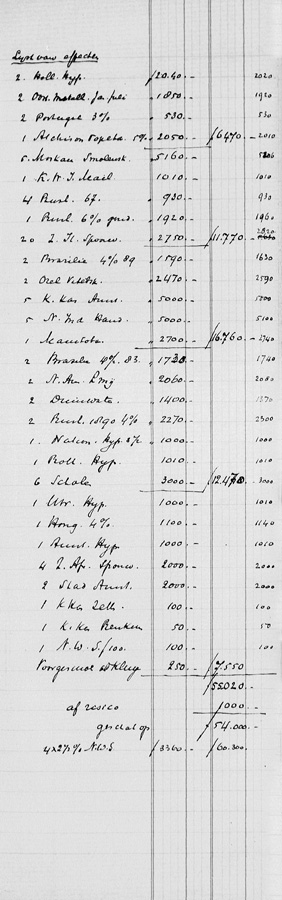 Lyst van effecten
2. Holl. Hyp. ƒ 2040.- 2020
2 Oost. Metall. Jan Juli " 1850.- 1920
2 Portugal 3% " 530.- 530
1 Atchison Topeka 5% " 2050.- ƒ 6470.- 2010
5. Moskau Smolensk. " 5160.-
1 K.W.I. Mail. 1010.- 1010
4 Rusl. 67. " 930.- 930
1 Rusl. 6% " 1920.- 1960
20 Z. It. Spoorw. " 2750.- ƒ 11.770.-
2 Brazilie 4% 89 " 1590.- 1630
2 Orel Vitebsk. " 2470.- 2590
5 K. Kas " 5000.- 5200
5 N. Ind Hand. " 5000.- 5100
1 Manitoba " 2700.- ƒ 16.760.- 2740
2 Brazilie 4% 83. " 1730.- 1740
2 N. Am. " 2060.- 2080
2 " 1400.- 1370
2 Rusl. 1890 4% " 2270.- 2300
1. Nation. Hyp. " 1000.- 1000
1 Rott. Hyp. 1010.- 1010
6 3000.- ƒ 12.470.- 3000
1 Utr. Hyp. 1000.- 1010
1 Hong. 4% 1100.- 1140
1 Hyp 1000.- 1010
4 Z. Afr. Spoorw. 2000.- 2000
2 Stad 2000.- 2000
1 K Kas 100.- 100
1 K. Kas 50.- 50
1 N.W.S/100. 100.- 100
250.- ƒ 7.550
ƒ 55020.-
af 1000.-
geschat op ƒ 54.000.-
4 x 2½% N.W.S ƒ 3360.- ƒ 60.300.-